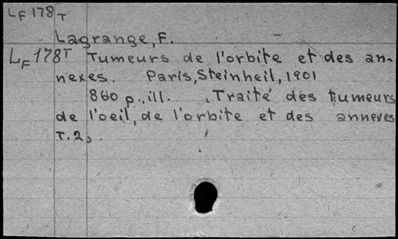 LF 178 T
Lagrange, F.
LF 178 T Tumeurs de l'orbite et des an-
nexes. Paris, Steinheil, 1901
860 p., ill. , Traité des tumeurs
de l'oeil, de l'orbite et des annexes
T. 2,.